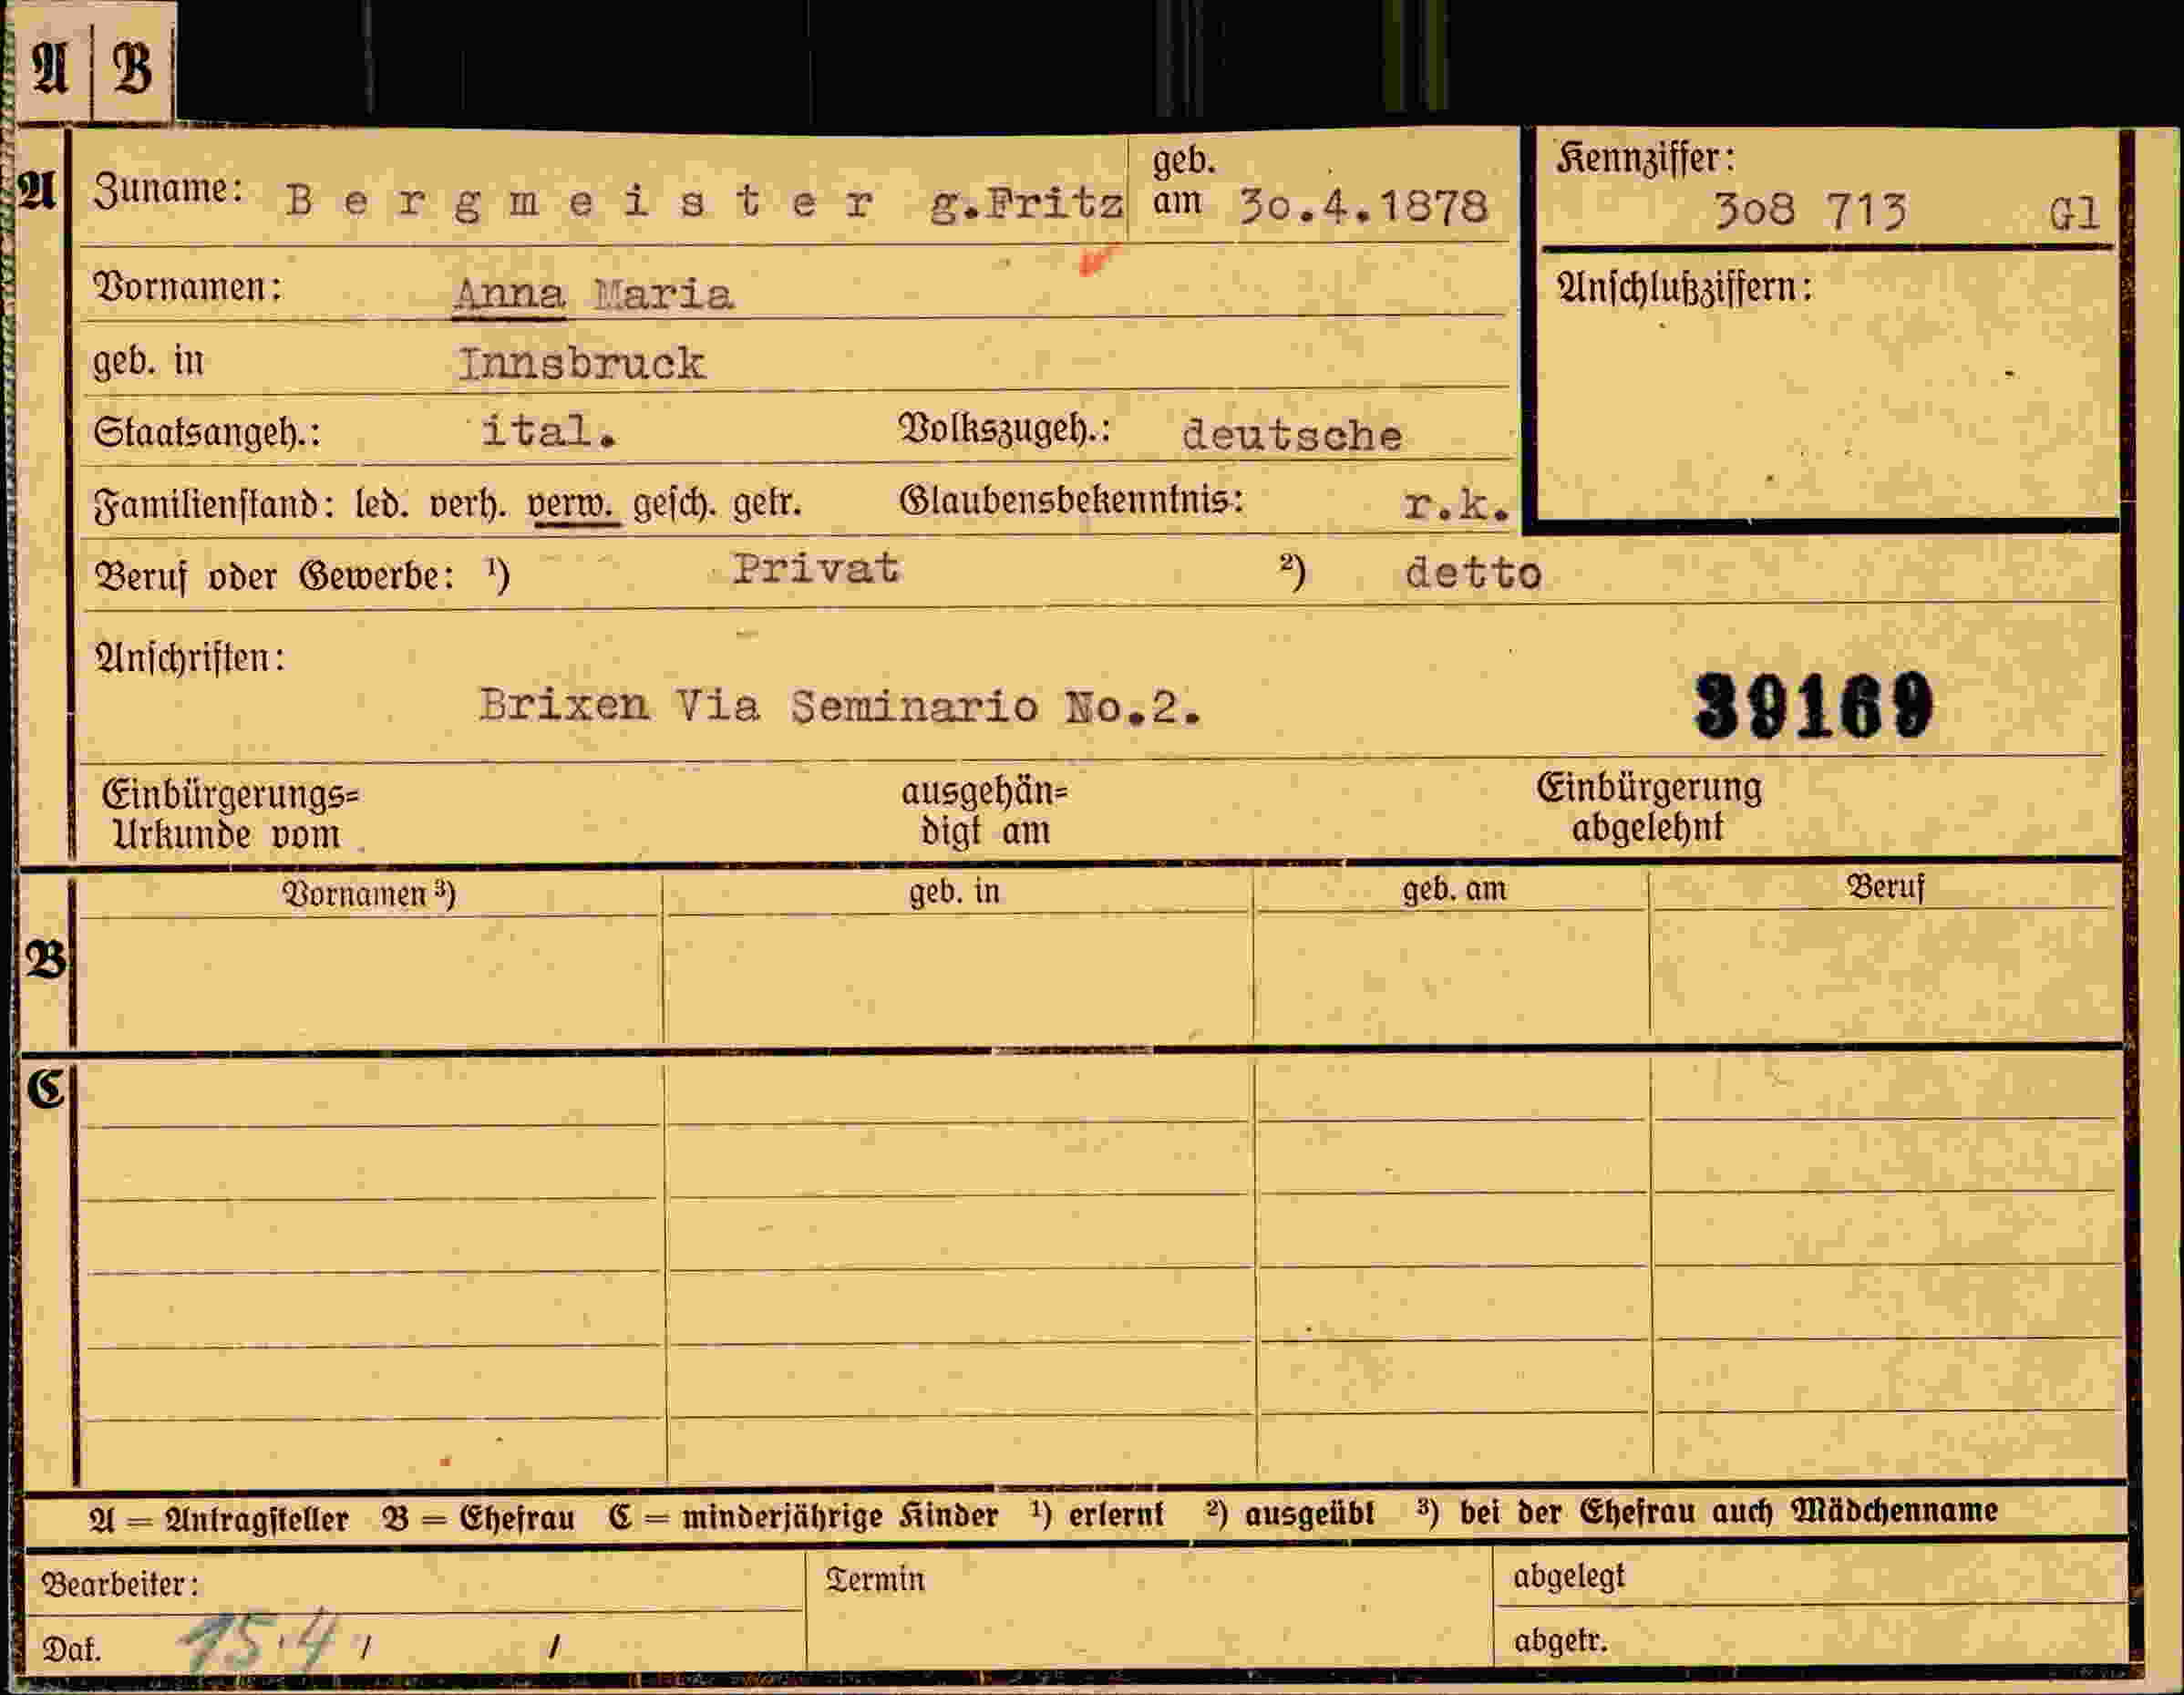 A B
A Zuname: Bergmeister g.Fritz geb. am 30.4.1878 Kennziffer: 308 713 Gl
Vornamen: Anna Maria Anschlußziffern:
geb. in Innsbruck
Staatsangeh.: ital. Volkszugeh.: deutsche
Familienstand: led. verh. verw. gesch. getr. Glaubensbekenntnis: r.k.
Beruf oder Gewerbe: ¹) Privat ²) detto
Anschriften:
Brixen Via Seminario No.2. 39169
Einbürgerungs= ausgehän= Einbürgerung
Urkunde vom digt am abgelehnt
Vornamen ³) geb. in geb. am Beruf
B
C
A = Antragsteller B = Ehefrau C = minderjährige Kinder ¹) erlernt ²) ausgeübt ³) bei der Ehefrau auch Mädchenname
Bearbeiter: Termin abgelegt
Dat. 15.4 / / abgetr.